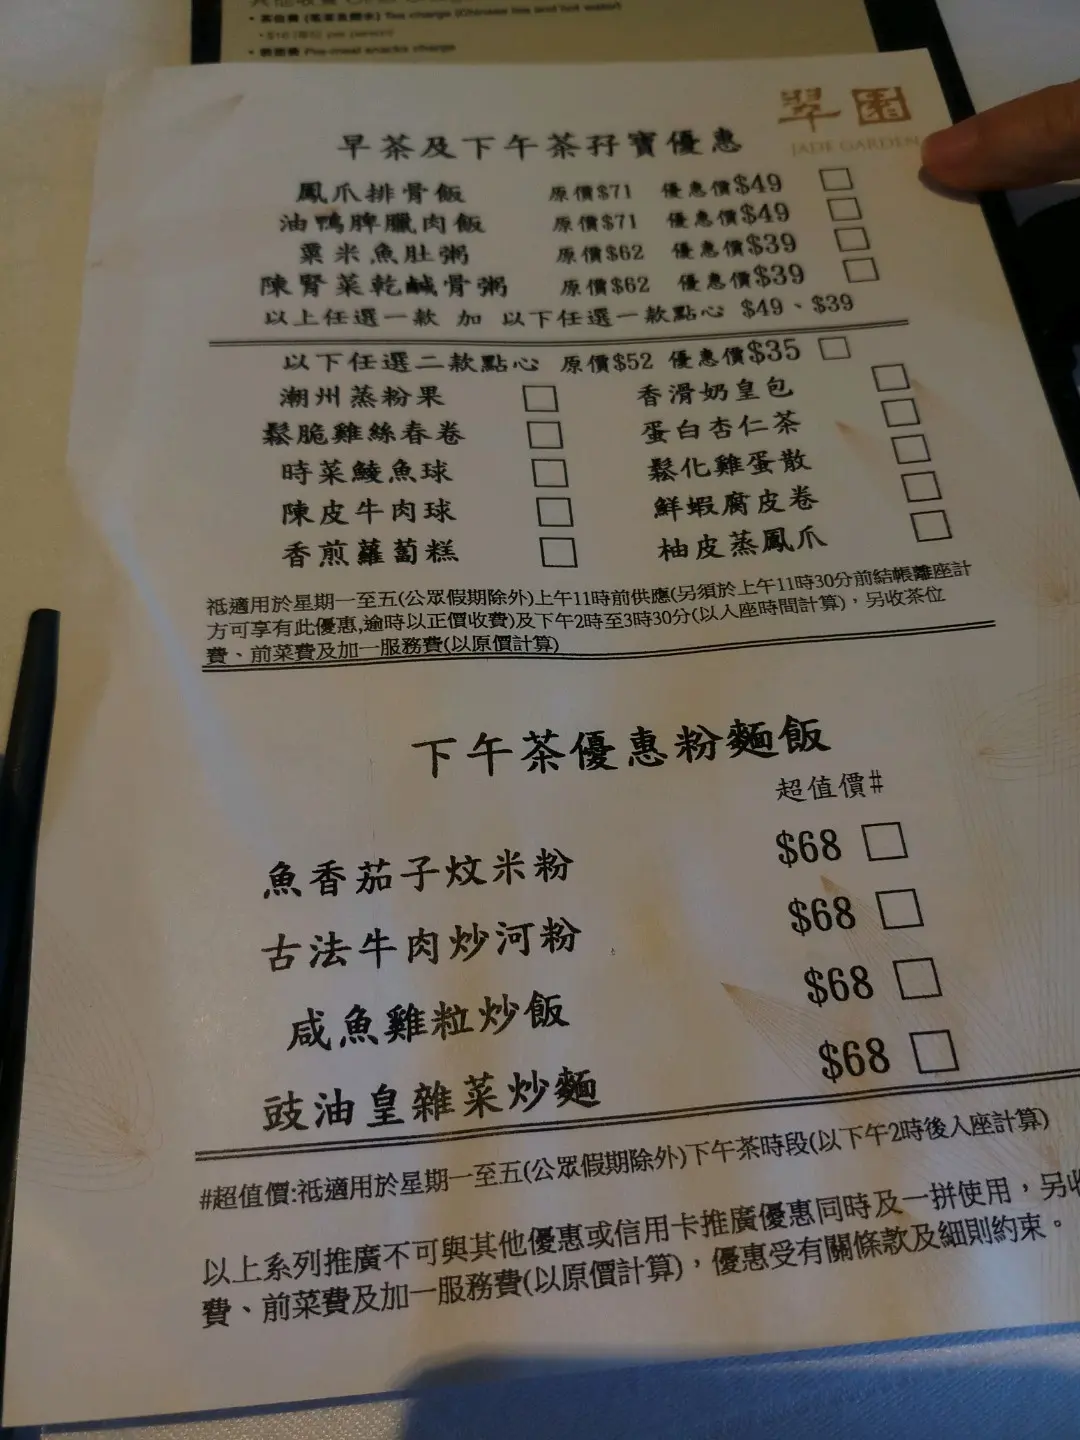 Tea charge (Chinese tea and hot water)
Pre-meal snacks charge
翠園
JADE GARDEN
早茶及下午茶孖寶優惠
鳳爪排骨飯 原價$71 優惠價$49 □
油鴨脾臘肉飯 原價$71 優惠價$49 □
粟米魚肚粥 原價$62 優惠價$39 □
陳腎菜乾鹹骨粥 原價$62 優惠價$39 □
以上任選一款 加 以下任選一款點心 $49、$39
以下任選二款點心 原價$52 優惠價$35 □
潮州蒸粉果 □ 香滑奶皇包 □
鬆脆雞絲春卷 □ 蛋白杏仁茶 □
時菜鯪魚球 □ 鬆化雞蛋散 □
陳皮牛肉球 □ 鮮蝦腐皮卷 □
香煎蘿蔔糕 □ 柚皮蒸鳳爪 □
祗適用於星期一至五(公眾假期除外)上午11時前供應(另須於上午11時30分前結帳離座計
方可享有此優惠,逾時以正價收費)及下午2時至3時30分(以入座時間計算)，另收茶位
費、前菜費及加一服務費(以原價計算)
下午茶優惠粉麵飯
超值價#
魚香茄子炆米粉 $68 □
古法牛肉炒河粉 $68 □
咸魚雞粒炒飯 $68 □
豉油皇雜菜炒麵 $68 □
#超值價:祗適用於星期一至五(公眾假期除外)下午茶時段(以下午2時後入座計算)
以上系列推廣不可與其他優惠或信用卡推廣優惠同時及一拼使用，另收
費、前菜費及加一服務費(以原價計算)，優惠受有關條款及細則約束。